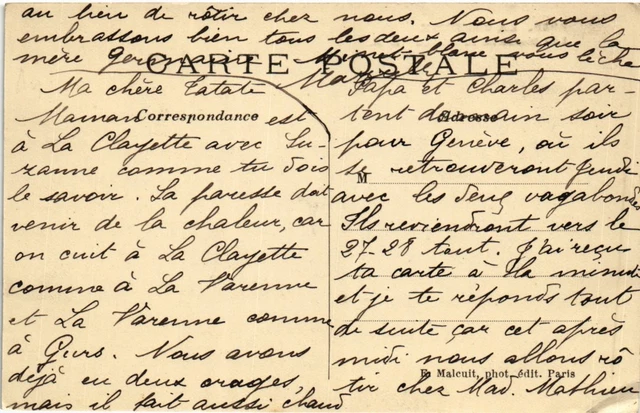 au lieu de rôtir chez nous. Nous vous
embrassons bien tous les deux ainsi que la
mère Germaine. Minet blanc vous lèche
CARTE POSTALE
Ma chère Tatate
Maman est
Correspondance
à La Clayette avec Su-
zanne comme tu dois
le savoir. La paresse doit
venir de la chaleur, car
on cuit à La Clayette
comme à La Varenne
et La Varenne comme
à Gurs. Nous avons
déjà eu deux orages,
mais il fait aussi chaud
Papa et Charles par-
tent demain soir
Adresse
pour Genève, où ils
se retrouveront jeudi
M
avec les deux vagabondes
Ils reviendront vers le
27-28 tout. J'ai reçu
ta carte à la minute
et je te réponds tout
de suite car cet après
midi nous allons rô
E. Malcuit, phot.-édit. Paris
tir chez Mad. Mathieu